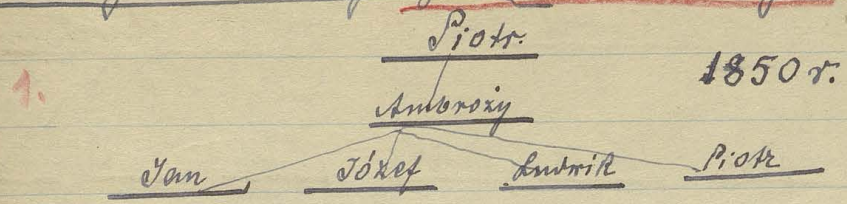 Piotr.
1. 1850 r.
Ambroży
Jan Józef Ludwik Piotr